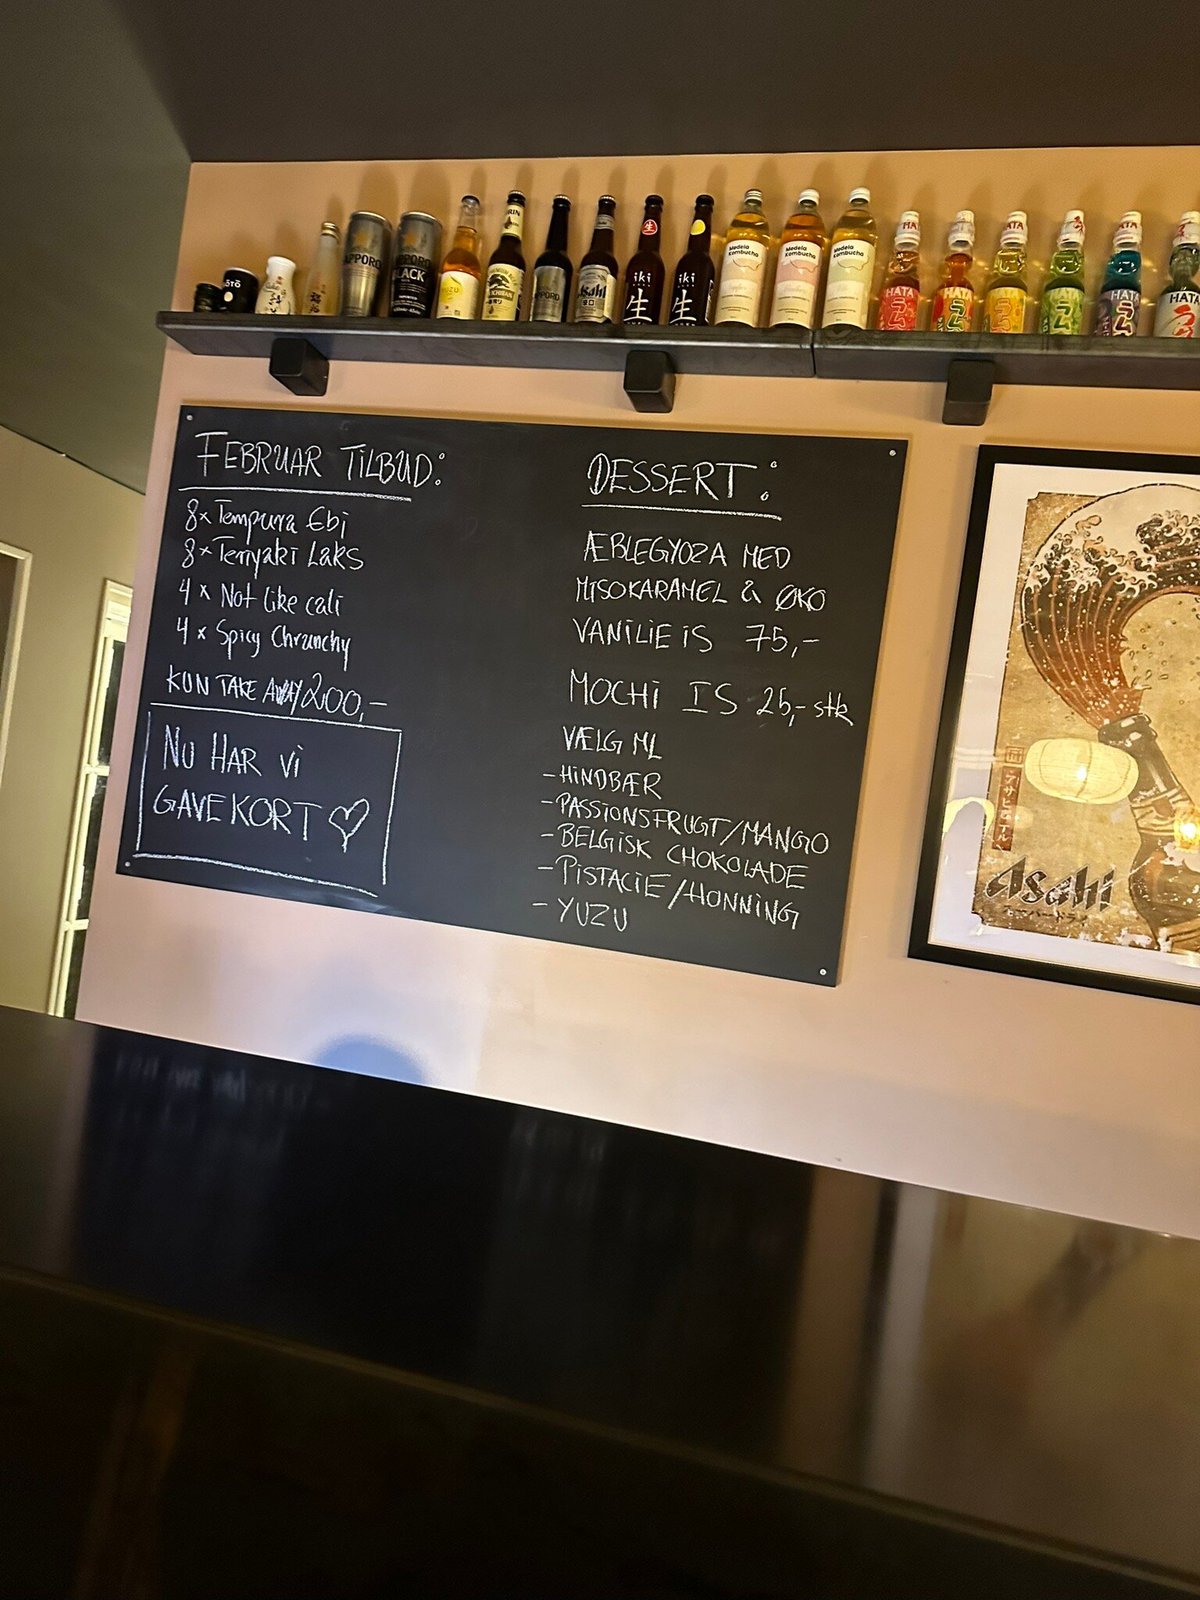 SAPPORO
SAPPORO
BLACK
YUZU
KIRIN
ICHIBAN
SAPPORO
Asahi
辛口
iki
生
iki
生
Medela
Kombucha
Medela
Kombucha
Medela
Kombucha
HATA
ラム
HATA
ラム
HATA
ラム
HATA
ラム
HATA
ラム
HATA
FEBRUAR TILBUD:
8x Tempura Ebi
8x Terryaki Laks
4 x Not like cali
4 x Spicy Chrunchy
KUN TAKE AWAY 200,-
NU HAR Vi
GAVEKORT ♡
DESSERT:
ÆBLEGYOZA MED
MISOKARAMEL & ØKO
VANILIE iS 75,-
MOCHI IS 25,- stk
VÆLG ML
- HINDBÆR
- PASSIONSFRUGT/MANGO
- BELGISK CHOKOLADE
- PISTACIE/HONNING
- YUZU
アサヒビール
Asahi